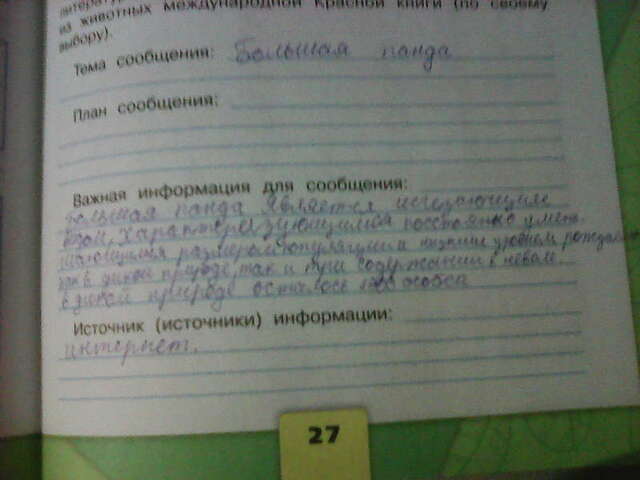 из животных международной Красной книги (по своему
выбору).
Тема сообщения: Большая панда
План сообщения:
Важная информация для сообщения:
Большая панда является исчезающим
видом, характеризующимся постоянно умень
шающимся размером популяции и низким уровнем рождаемо
как в дикой природе, так и при содержании в неволе.
в дикой природе осталось особей
Источник (источники) информации:
интернет.
27